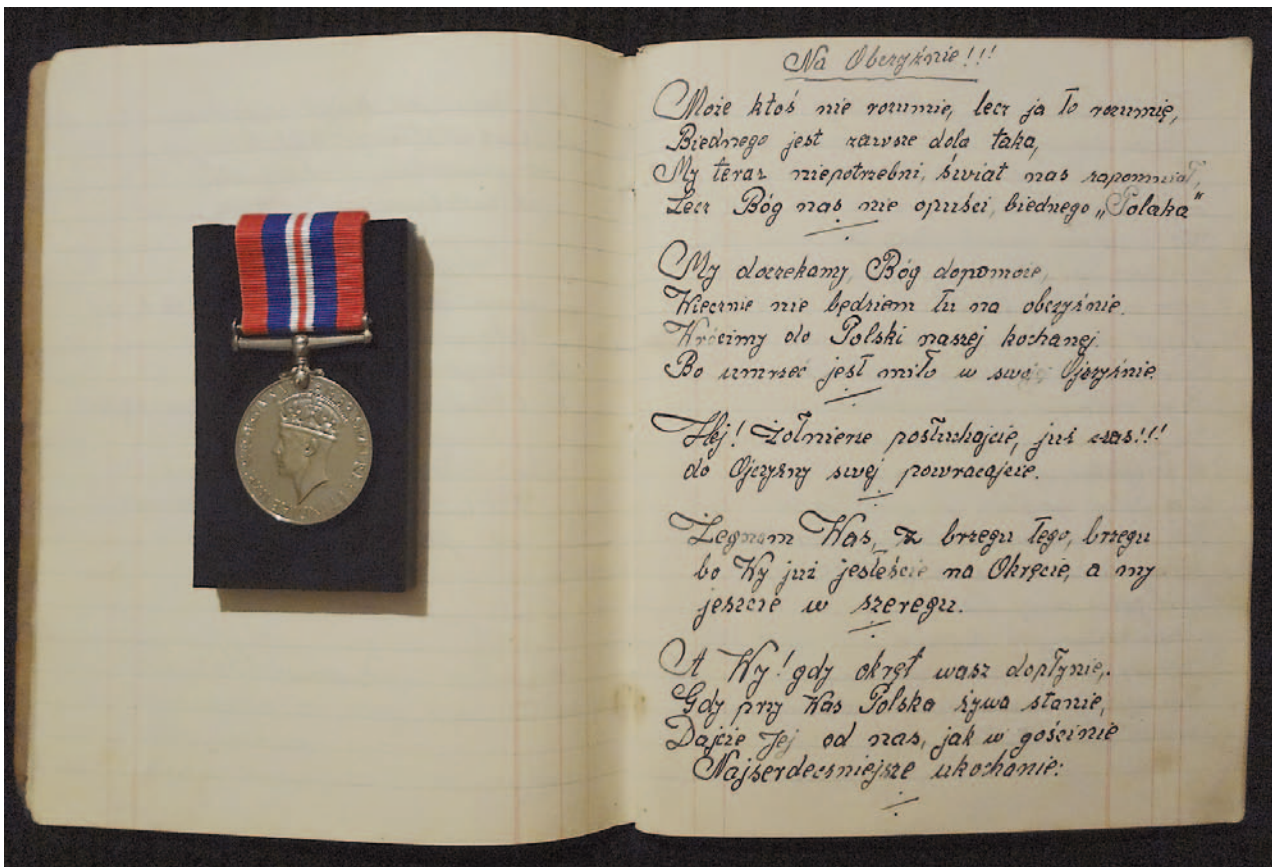 Na Obczyźnie!!!
Może ktoś nie rozumie, lecz ja to rozumię,
Biednego jest zawsze dola taka,
My teraz niepotrzebni, świat nas zapomniał,
Lecz Bóg nas nie opuści, biednego „Polaka"
My doczekamy, Bóg dopomoże,
Wiecznie nie będziem tu na obczyźnie.
Wrócimy do Polski naszej kochanej.
Bo umrzeć jest miło w swojej Ojczyźnie.
Hej! Żołnierze posłuchajcie, już czas!!!
do Ojczyzny swej powracajcie.
Żegnam Was, z brzegu tego, brzegu
bo Wy już jesteście na Okręcie, a my
jeszcze w szeregu.
A Wy! gdy okręt wasz dopłynie,
Gdy przy Was Polska żywa stanie,
Dajcie Jej od nas, jak w gościnie
Najserdeczniejsze ukochanie: